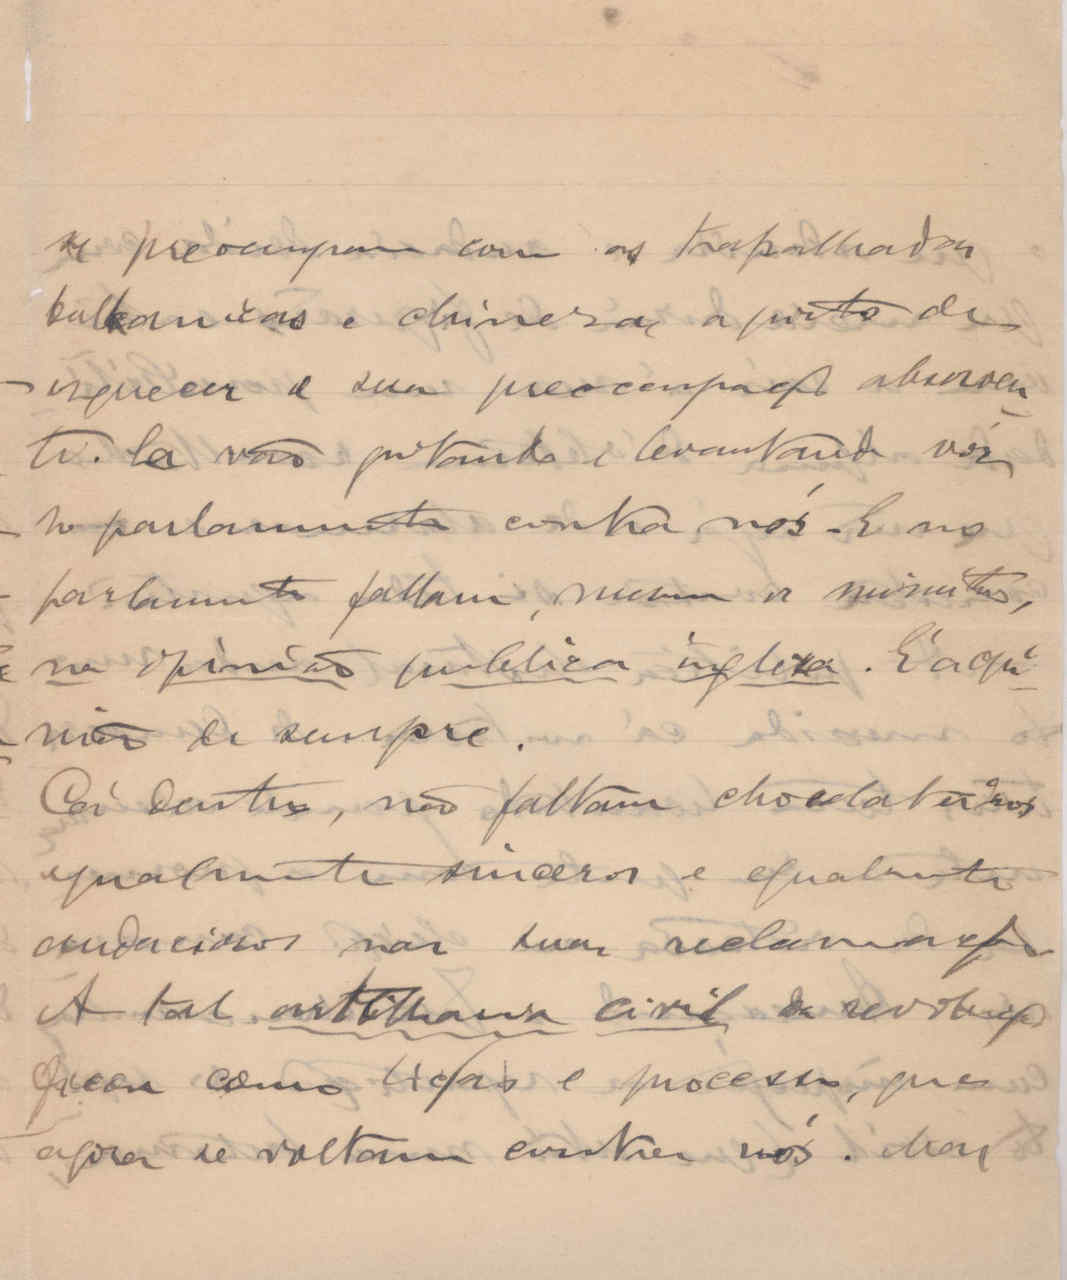 se preocupam com as trapalhadas
balkanicas e chinezas, a ponto de
esquecer a sua preocupação absorven-
te. Lá vão gritando e levantando vóz
no parlamento contra nós. E no
parlamento fallam, mesmo os ministros,
na opinião publica ingleza. É a opi-
nião de sempre.
Cá dentro, não faltam chocolateiros
egualmente sinceros e egualmente
audaciosos nas suas reclamações
A tal artilharia civil da revolução
ficou como lição e processo, que
agora se voltam contra nós. Mas